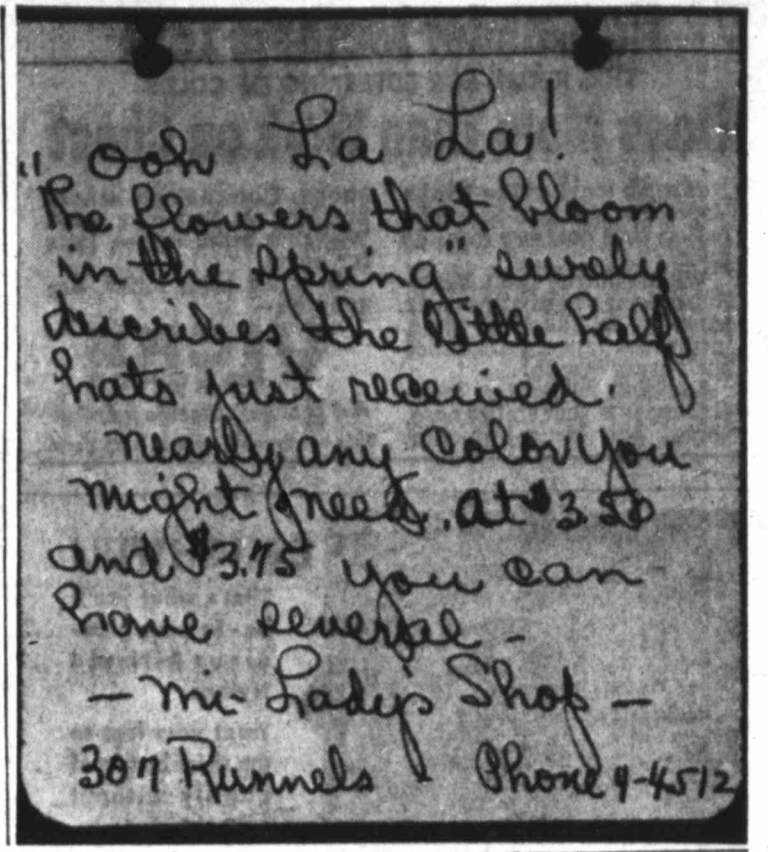 Ooh La La!
"The flowers that bloom
in the spring" surely
describes the little half
hats just received.
Nearly any color you
might need. At $3.50
and $3.75 you can
have several -
- Mi-Lady's Shop -
307 Runnels Phone 4-4512